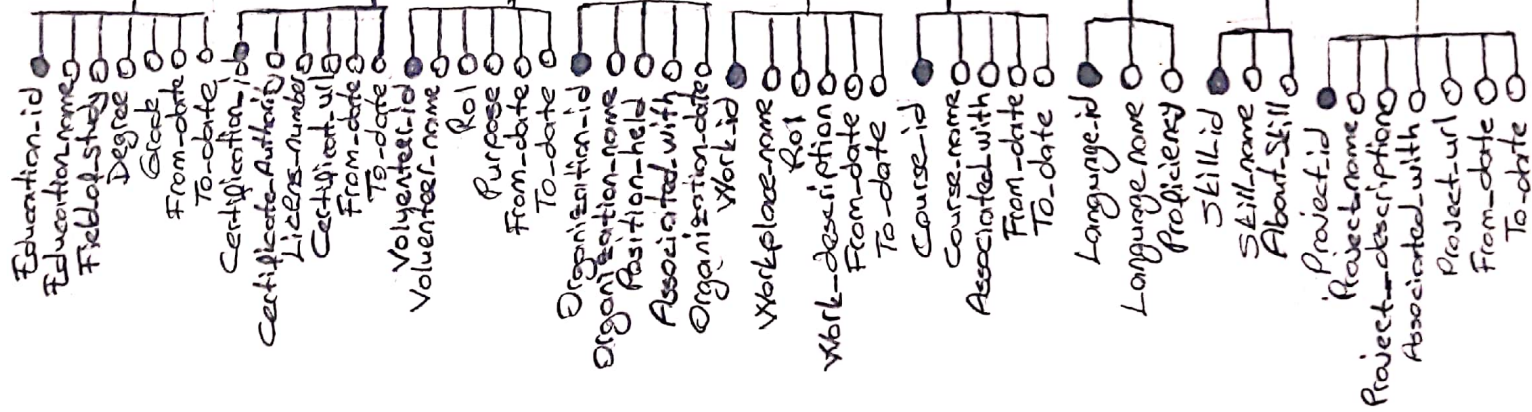 Education_id
Education_name
Field_of_study
Degree
Grade
From_date
To_date
Certification_id
Certificate_Authority
Licens_number
Certificat_url
From_date
To_date
Volyenteer_id
Voluenteer_name
Rol
Purpose
From_date
To_date
Organization_id
Organization_name
Position_held
Associated_with
Organization_date
Work_id
Workplace_name
Rol
Work_description
From_date
To_date
Course_id
Course_name
Associated_with
From_date
To_date
Language_id
Language_name
Proficiency
Skill_id
Skill_name
About_skill
Project_id
Project_name
Project_description
Associated_with
Project_url
From_date
To_date